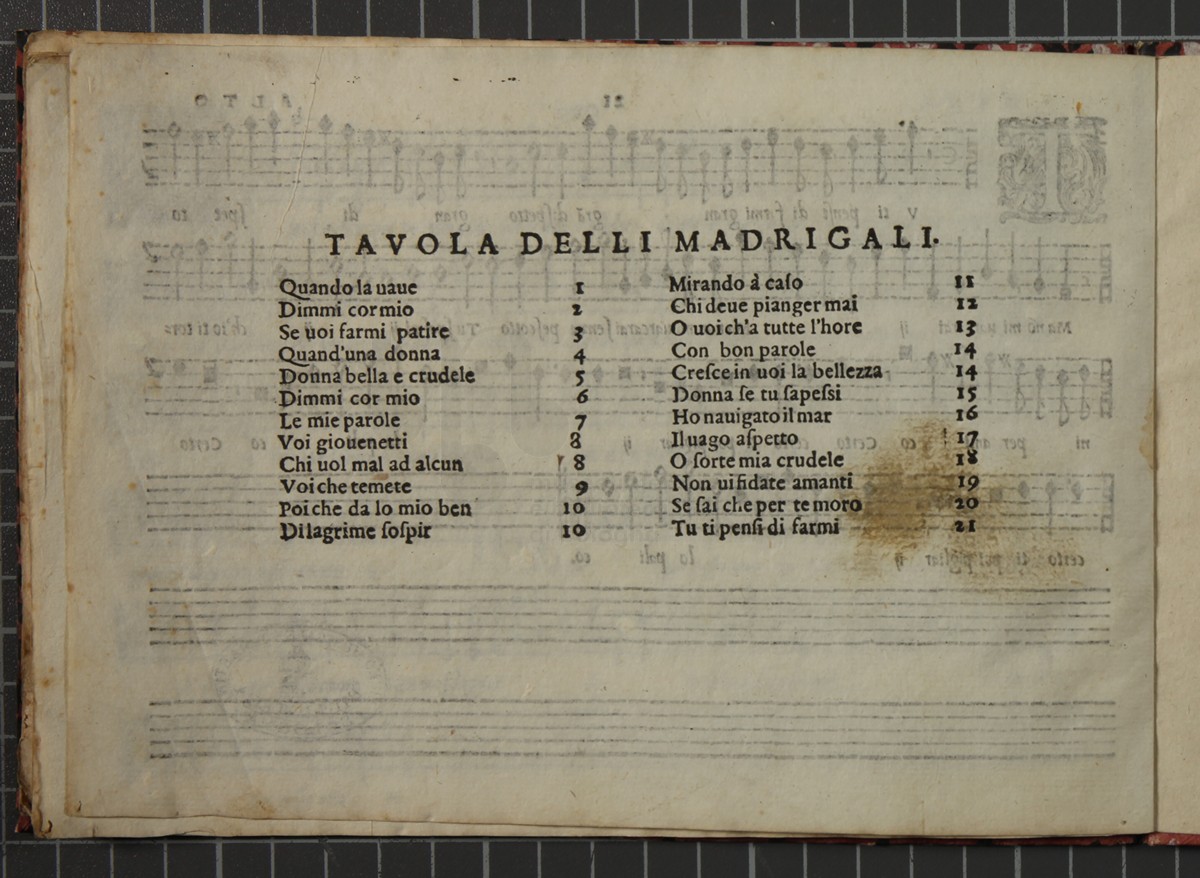 TAVOLA DELLI MADRIGALI.
Quando la uaue 1
Dimmi cor mio 2
Se uoi farmi patire 3
Quand'una donna 4
Donna bella e crudele 5
Dimmi cor mio 6
Le mie parole 7
Voi giouenetti 8
Chi uol mal ad alcun 8
Voi che temete 9
Poi che da lo mio ben 10
Di lagrime ſoſpir 10
Mirando à caſo 11
Chi deue pianger mai 12
O uoi ch'a tutte l'hore 13
Con bon parole 14
Creſce in uoi la bellezza 14
Donna ſe tu ſapeſsi 15
Ho nauigato il mar 16
Il uago aſpetto 17
O ſorte mia crudele 18
Non ui fidate amanti 19
Se ſai che per te moro 20
Tu ti penſi di farmi 21